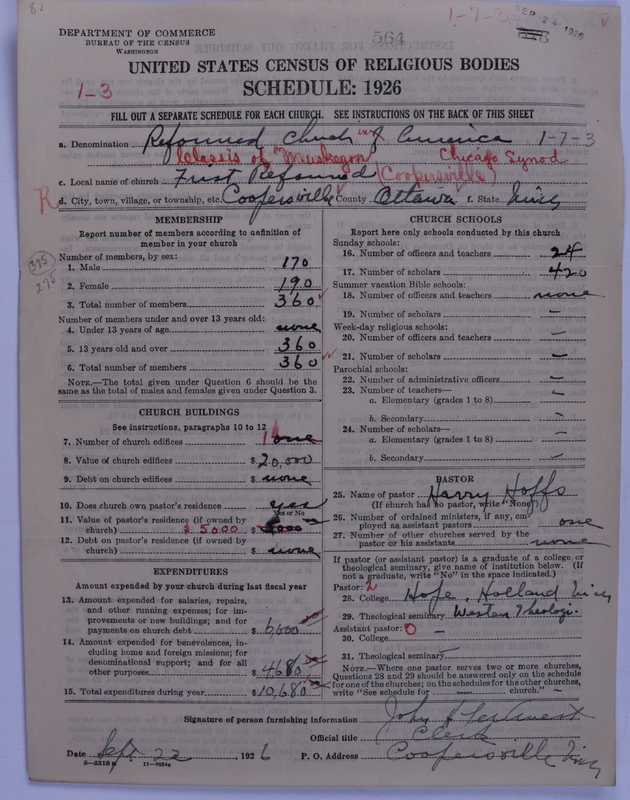 DEPARTMENT OF COMMERCE
BUREAU OF THE CENSUS
WASHINGTON
564
1-7-3
SEP 24 1926
UNITED STATES CENSUS OF RELIGIOUS BODIES
1-3
SCHEDULE: 1926
FILL OUT A SEPARATE SCHEDULE FOR EACH CHURCH. SEE INSTRUCTIONS ON THE BACK OF THIS SHEET
a. Denomination Reformed Church in America 1-7-3
Classis of Muskegon Chicago Synod
c. Local name of church First Reformed (Coopersville)
R
d. City, town, village, or township, etc. Coopersville County Ottawa f. State Mich
MEMBERSHIP
Report number of members according to definition of member in your church
Number of members, by sex:
375
275
1. Male 170
2. Female 190
3. Total number of members 360
Number of members under and over 13 years old:
4. Under 13 years of age none
5. 13 years old and over 360
6. Total number of members 360
NOTE.—The total given under Question 6 should be the
same as the total of males and females given under Question 3.
CHURCH BUILDINGS
See instructions, paragraphs 10 to 12
7. Number of church edifices 1 one
8. Value of church edifices $ 20,000
9. Debt on church edifices $ none
10. Does church own pastor's residence yes
Yes or No
11. Value of pastor's residence (if owned by
church) $ 5000 $
12. Debt on pastor's residence (if owned by
church) $ none
EXPENDITURES
Amount expended by your church during last fiscal year
13. Amount expended for salaries, repairs,
and other running expenses; for im-
provements or new buildings; and for
payments on church debt $ 6,000
14. Amount expended for benevolences, in-
cluding home and foreign missions; for
denominational support; and for all
other purposes $ 4680
15. Total expenditures during year $ 10,680
CHURCH SCHOOLS
Report here only schools conducted by this church
Sunday schools:
16. Number of officers and teachers 24
17. Number of scholars 420
Summer vacation Bible schools:
18. Number of officers and teachers none
19. Number of scholars —
Week-day religious schools:
20. Number of officers and teachers —
21. Number of scholars —
Parochial schools:
22. Number of administrative officers —
23. Number of teachers—
a. Elementary (grades 1 to 8) —
b. Secondary —
24. Number of scholars—
a. Elementary (grades 1 to 8) —
b. Secondary —
PASTOR
25. Name of pastor Harry Hoffs
(If church has no pastor, write "None")
26. Number of ordained ministers, if any, em-
ployed as assistant pastors one
27. Number of other churches served by the
pastor or his assistants none
If pastor (or assistant pastor) is a graduate of a college or
theological seminary, give name of institution below. (If
not a graduate, write "No" in the space indicated.)
Pastor: 2
28. College Hope, Holland Mich
29. Theological seminary Western Theologi.
Assistant pastor: 0
30. College —
31. Theological seminary —
NOTE.—Where one pastor serves two or more churches,
Questions 28 and 29 should be answered only on the schedule
for one of the churches; on the schedules for the other churches,
write "See schedule for — church."
Signature of person furnishing information John H
Official title Clerk
Date Sept 22, 1926 P. O. Address Coopersville Mich
8-5518a 11-9664a